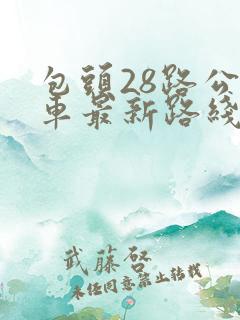 包頭28路公
車最新路綫
武藤啓
未經同意禁止轉載